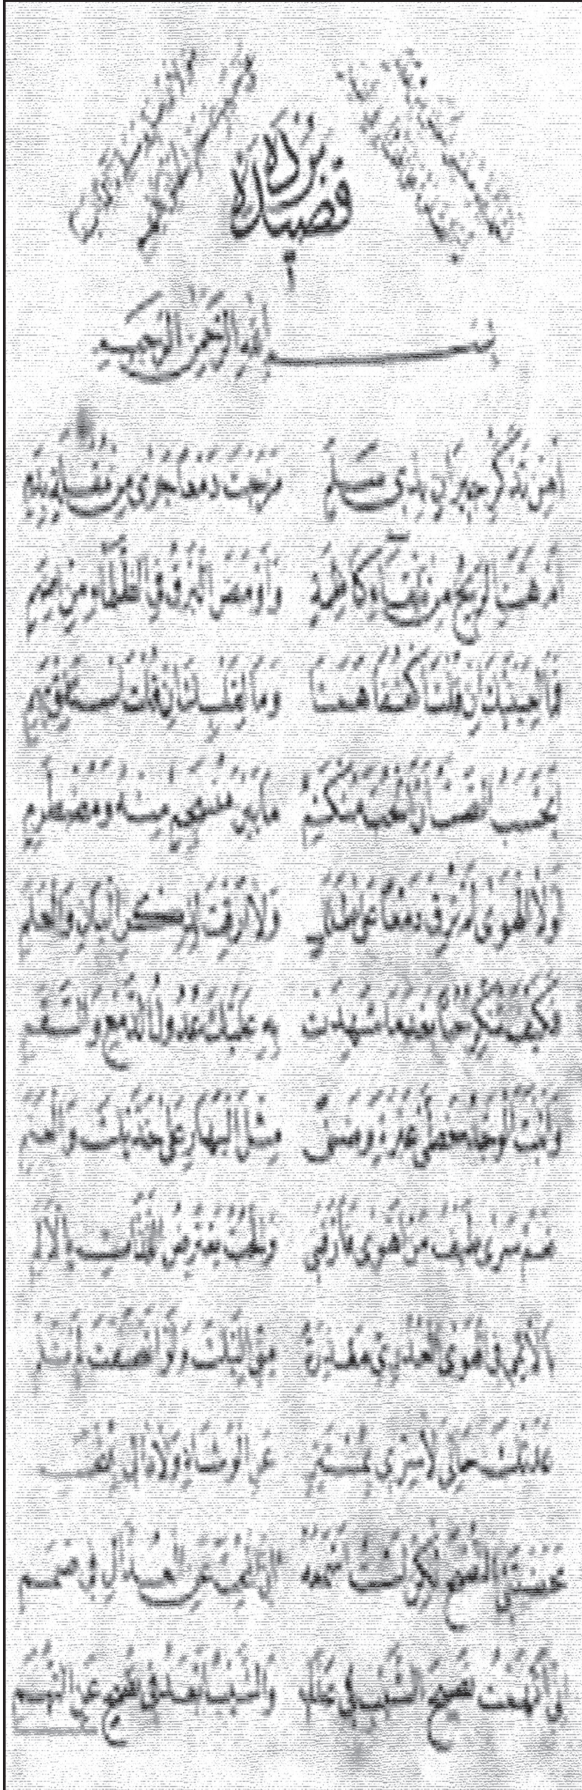 قصيده برده
بِسْمِ اللهِ الرَّحْمٰنِ الرَّحِيْمِ
أَمِنْ تَذَكُّرِ جِيْرَانٍ بِذِيْ سَلَمٍ مَزَجْتَ دَمْعًا جَرٰى مِنْ مُقْلَةٍ بِدَمٍ
أَمْ هَبَّتِ الرِّيْحُ مِنْ تِلْقَاءِ كَاظِمَةٍ وَأَوْمَضَ الْبَرْقُ فِي الظَّلْمَاءِ مِنْ إِضَمٍ
فَمَا لِعَيْنَيْكَ إِنْ قُلْتَ اكْفُفَا هَمَتَا وَمَا لِقَلْبِكَ إِنْ قُلْتَ اسْتَفِقْ يَهِمٍ
أَيَحْسَبُ الصَّبُّ أَنَّ الْحُبَّ مُنْكَتِمٌ مَا بَيْنَ مُنْسَجِمٍ مِنْهُ وَمُضْطَرِمٍ
لَوْلَا الْهَوٰى لَمْ تُرِقْ دَمْعًا عَلٰى طَلَلٍ وَلَا أَرِقْتَ لِذِكْرِ الْبَانِ وَالْعَلَمِ
فَكَيْفَ تُنْكِرُ حُبًّا بَعْدَ مَا شَهِدَتْ بِهِ عَلَيْكَ عُدُوْلُ الدَّمْعِ وَالسَّقَمِ
وَأَثْبَتَ الْوَجْدُ خَطَّيْ عَبْرَةٍ وَضَنًى مِثْلَ الْبَهَارِ عَلٰى خَدَّيْكَ وَالْعَنَمِ
نَعَمْ سَرٰى طَيْفُ مَنْ أَهْوٰى فَأَرَّقَنِيْ وَالْحُبُّ يَعْتَرِضُ اللَّذَّاتِ بِالْأَلَمِ
يَا لَائِمِيْ فِي الْهَوَى الْعُذْرِيِّ مَعْذِرَةً مِنِّيْ إِلَيْكَ وَلَوْ أَنْصَفْتَ لَمْ تَلُمِ
عَدَتْكَ حَالِيَ لَا سِرِّيْ بِمُسْتَتِرٍ عَنِ الْوُشَاةِ وَلَا دَائِيْ بِمُنْحَسِمِ
مَحَّضْتَنِي النُّصْحَ لٰكِنْ لَسْتُ أَسْمَعُهُ إِنَّ الْمُحِبَّ عَنِ الْعُذَّالِ فِيْ صَمَمِ
إِنِّي اتَّهَمْتُ نَصِيْحَ الشَّيْبِ فِيْ عَذَلِيْ وَالشَّيْبُ أَبْعَدُ فِيْ نُصْحٍ عَنِ التُّهَمِ